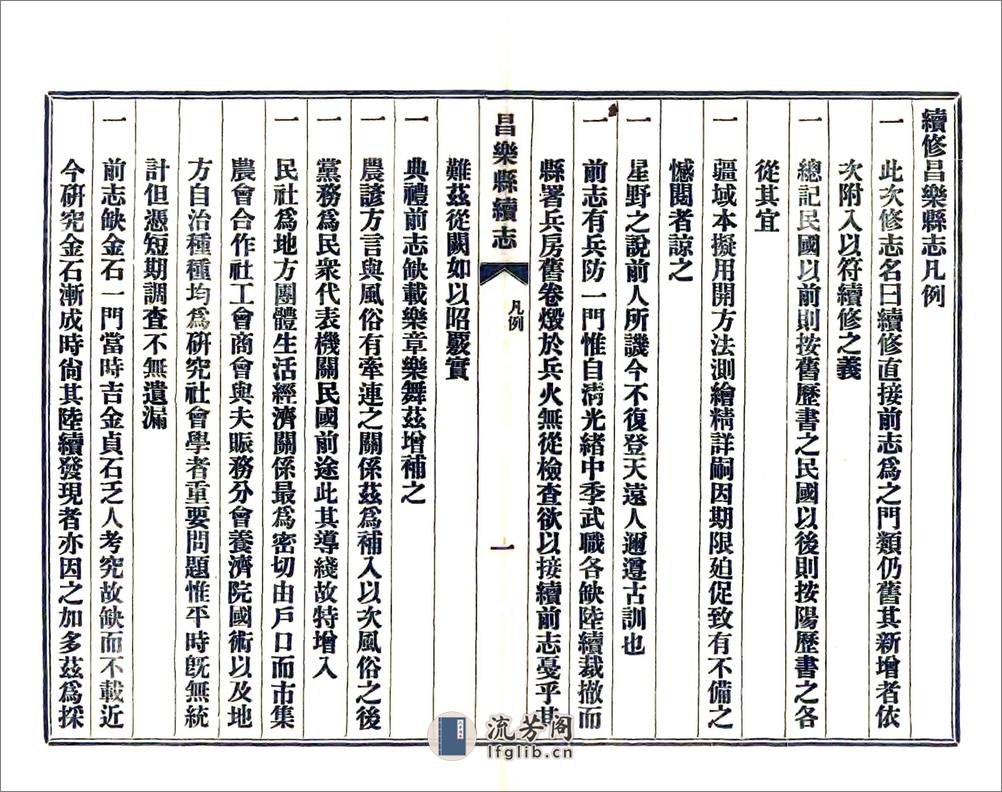 續修昌樂縣志凡例
一 此次修志名曰續修直接前志爲之門類仍舊其新增者依
次附入以符續修之義
一 總記民國以前則按舊歷書之民國以後則按陽歷書之各
從其宜
一 疆域本擬用開方法測繪精詳嗣因期限廹促致有不備之
憾閱者諒之
一 星野之說前人所譏今不復登天遠人邇遵古訓也
一 前志有兵防一門惟自清光緒中季武職各缺陸續裁撤而
縣署兵房舊卷燬於兵火無從檢查欲以接續前志戞乎其
昌樂縣續志
凡例
一
難茲從闕如以昭覈實
一 典禮前志缺載樂章樂舞茲增補之
一 農諺方言與風俗有牽連之關係茲爲補入以次風俗之後
一 黨務爲民衆代表機關民國前途此其導綫故特增入
一 民社爲地方團體生活經濟關係最爲密切由戶口而市集
農會合作社工會商會與夫賑務分會養濟院國術以及地
方自治種種均爲研究社會學者重要問題惟平時旣無統
計但憑短期調查不無遺漏
一 前志缺金石一門當時吉金貞石乏人考究故缺而不載近
今研究金石漸成時尙其陸續發現者亦因之加多茲爲採
流芳阁
lfglib.cn